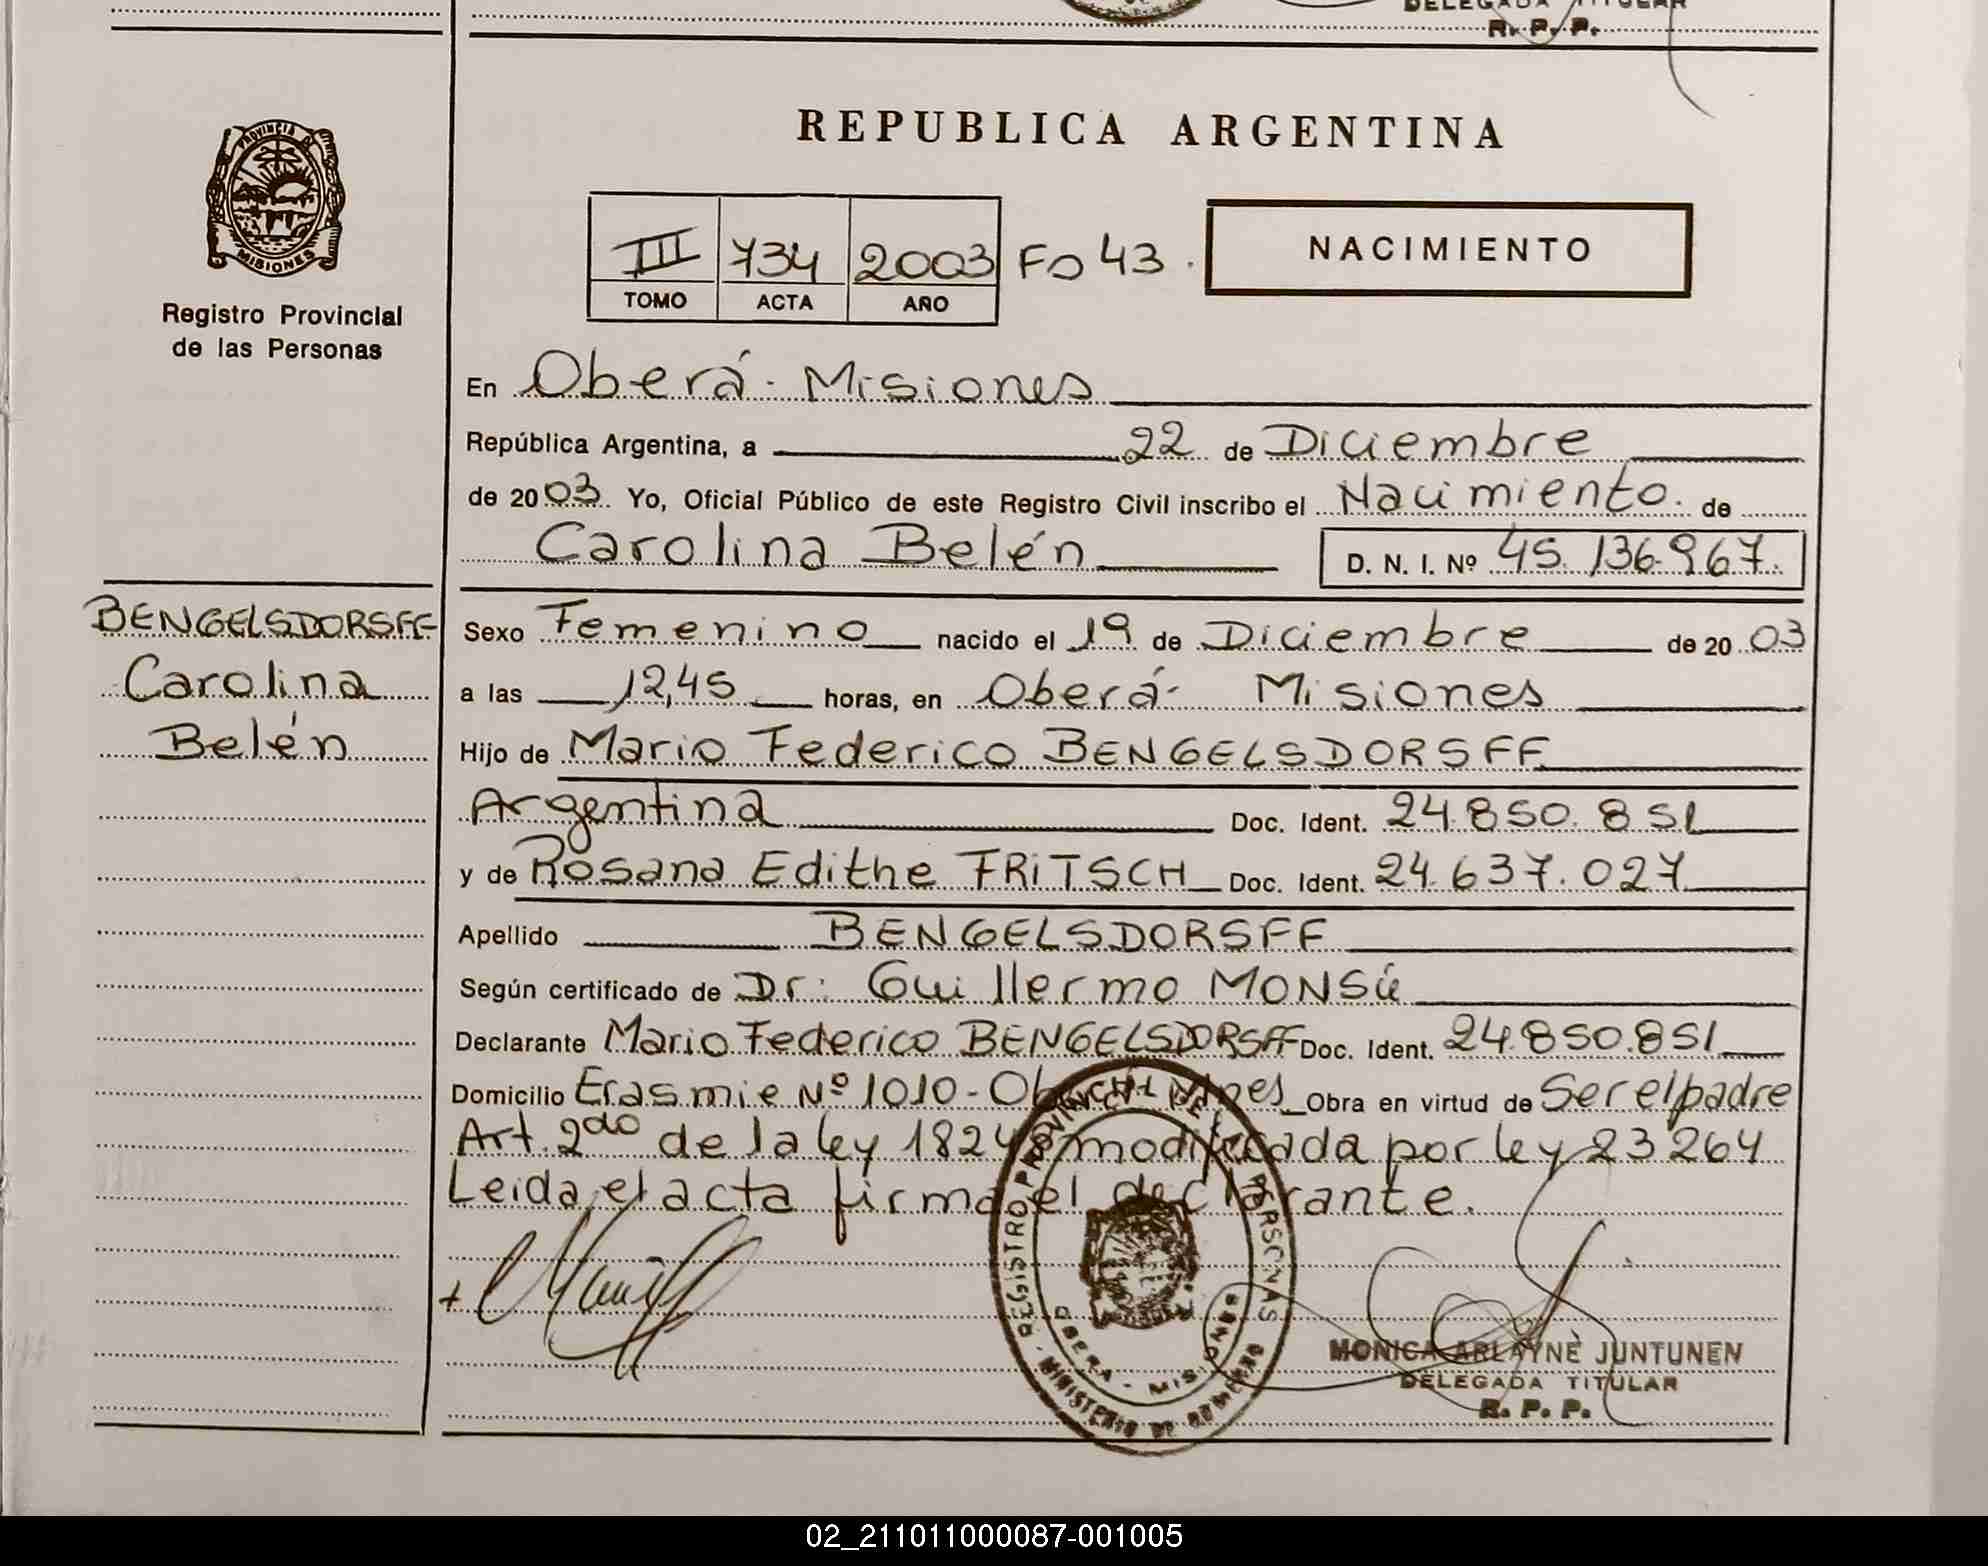 DELEGADA TITULAR
R. P. P.
PROVINCIA D
MISIONES
Registro Provincial
de las Personas
REPUBLICA ARGENTINA
III 734 2003 Fo 43.
TOMO ACTA AÑO
NACIMIENTO
En Oberá - Misiones
República Argentina, a 22 de Diciembre
de 2003. Yo, Oficial Público de este Registro Civil inscribo el Nacimiento. de
Carolina Belén D. N. I. Nº 45.136.967.
BENGELSDORSFF
Carolina
Belén
Sexo Femenino nacido el 19 de Diciembre de 2003
a las 12,45 horas, en Oberá - Misiones
Hijo de Mario Federico BENGELSDORSFF
Argentina Doc. Ident. 24.850.851
y de Rosana Edithe FRITSCH Doc. Ident. 24.637.027
Apellido BENGELSDORSFF
Según certificado de Dr: Guillermo MONSÚ
Declarante Mario Federico BENGELSDORSFF Doc. Ident. 24.850.851
Domicilio Erasmie Nº 1010 - Obra en virtud de Ser el padre
Art. 2do de la ley 18248 modificada por ley 23264
Leida el acta firma el declarante.
REGISTRO PROVINCIAL DE LAS PERSONAS
OBERA - MISIONES
MINISTERIO DE GOBIERNO
MONICA ARLAYNÈ JUNTUNEN
DELEGADA TITULAR
R. P. P.
02_211011000087-001005